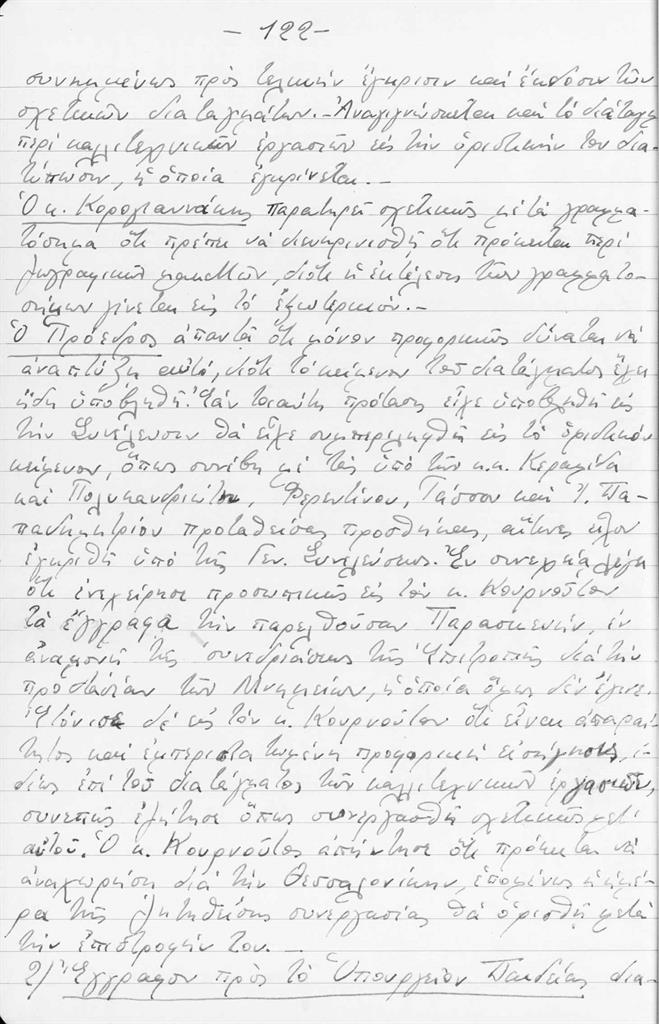 - 122 -
συνημμένως πρὸς τελικὴν ἔγκρισιν καὶ ἔκδοσιν τῶν
σχετικῶν διαταγμάτων.- Ἀναγιγνώσκεται καὶ τὸ διάταγμα
περὶ καλλιτεχνικῶν ἐργασιῶν εἰς τὴν ὁριστικὴν του δια-
τύπωσιν, ἡ ὁποία ἐγκρίνεται.-
Ὁ κ. Κορογιαννάκης παρατηρεῖ σχετικῶς μὲ τὰ γραμμα-
τόσημα ὅτι πρέπει νὰ διευκρινισθῇ ὅτι πρόκειται περὶ
ζωγραφικῶν μακεττῶν, διότι ἡ ἐκτέλεσις τῶν γραμματο-
σήμων γίνεται εἰς τὸ ἐξωτερικόν.-
Ὁ Πρόεδρος ἀπαντᾶ ὅτι μόνον προφορικῶς δύναται νὰ
ἀναπτύξῃ αὐτό, διότι τὸ κείμενον τοῦ διατάγματος ἔχει
ἤδη ὑποβληθῆ. Ἐὰν τοιαύτη πρότασις εἶχε ὑποβληθῆ εἰς
τὴν Συνέλευσιν θὰ εἶχε συμπεριληφθῆ εἰς τὸ ὁριστικὸν
κείμενον, ὅπως συνέβη μὲ τὰς ὑπὸ τῶν κ.κ. Κεραμίδα
καὶ Πολυκανδριώτου, Φερεντίνου, Τάσσου καὶ Ἰ. Πα-
παδημητρίου προταθείσας προσθήκας, αἵτινες εἶχον
ἐγκριθῆ ὑπὸ τῆς Γεν. Συνελεύσεως. Ἐν συνεχείᾳ λέγει
ὅτι ἐνεχείρησε προσωπικῶς εἰς τὸν κ. Κουρνοῦτον
τὰ ἔγγραφα τὴν παρελθοῦσαν Παρασκευήν, ἐν
ἀναμονῇ τῆς συνεδριάσεως τῆς Ἐπιτροπῆς διὰ τὴν
προστασίαν τῶν Μνημείων, ἡ ὁποία ὅμως δὲν ἔγινε.
Ἐτόνισε δὲ εἰς τὸν κ. Κουρνοῦτον ὅτι εἶναι ἀπαραί-
τητος καὶ ἐμπεριστατωμένη προφορικὴ εἰσήγησις, ἰ-
δίως ἐπὶ τοῦ διατάγματος τῶν καλλιτεχνικῶν ἐργασιῶν,
συνεπῶς ἐζήτησε ὅπως συνεργασθῇ σχετικῶς μετ'
αὐτοῦ. Ὁ κ. Κουρνοῦτος ἀπήντησε ὅτι πρόκειται νὰ
ἀναχωρήσῃ διὰ τὴν Θεσσαλονίκην, ἑπομένως ἡ ἡμέ-
ρα τῆς ζητηθείσης συνεργασίας θὰ ὁρισθῇ μετὰ
τὴν ἐπιστροφήν του.-
2) Ἔγγραφον πρὸς τὸ Ὑπουργεῖον Παιδείας δια-